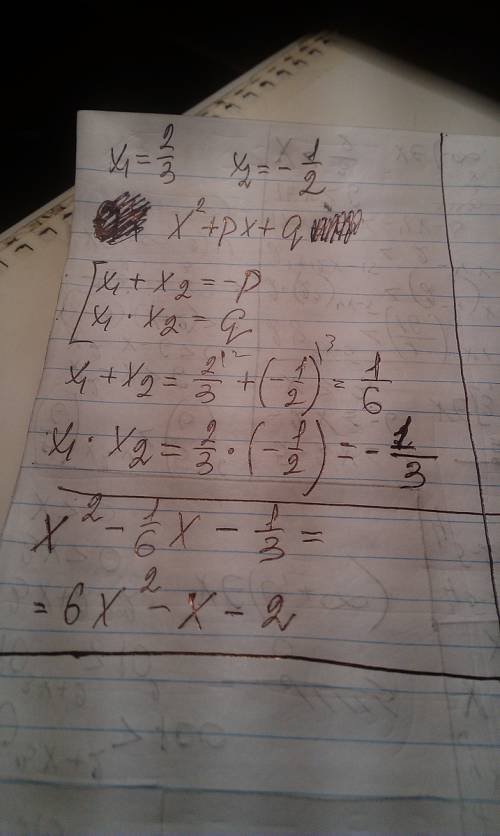 x₁ = 2/3    x₂ = - 1/2
x² + px + q
[ x₁ + x₂ = -p
x₁ · x₂ = q
x₁ + x₂ = 2/3 \² + (- 1/2) \³ = 1/6
x₁ · x₂ = 2/3 · (- 1/2) = - 1/3
x² - 1/6 x - 1/3 =
= 6x² - x - 2